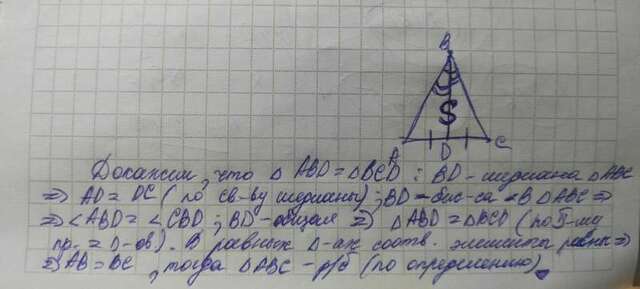 B
S
A D C
Докажем, что △ ABD = △BCD : BD - медиана △ABC
⇒ AD = DC ( по св-ву медианы) ; BD - бис-са ∠B △ABC ⇒
⇒ ∠ABD = ∠CBD ; BD - общая ⇒ △ABD = △BCD (по I-му
пр. = △-ов). В равных △-ах соотв. элементы равны ⇒
⇒ AB = BC , тогда △ABC - р/б (по определению)